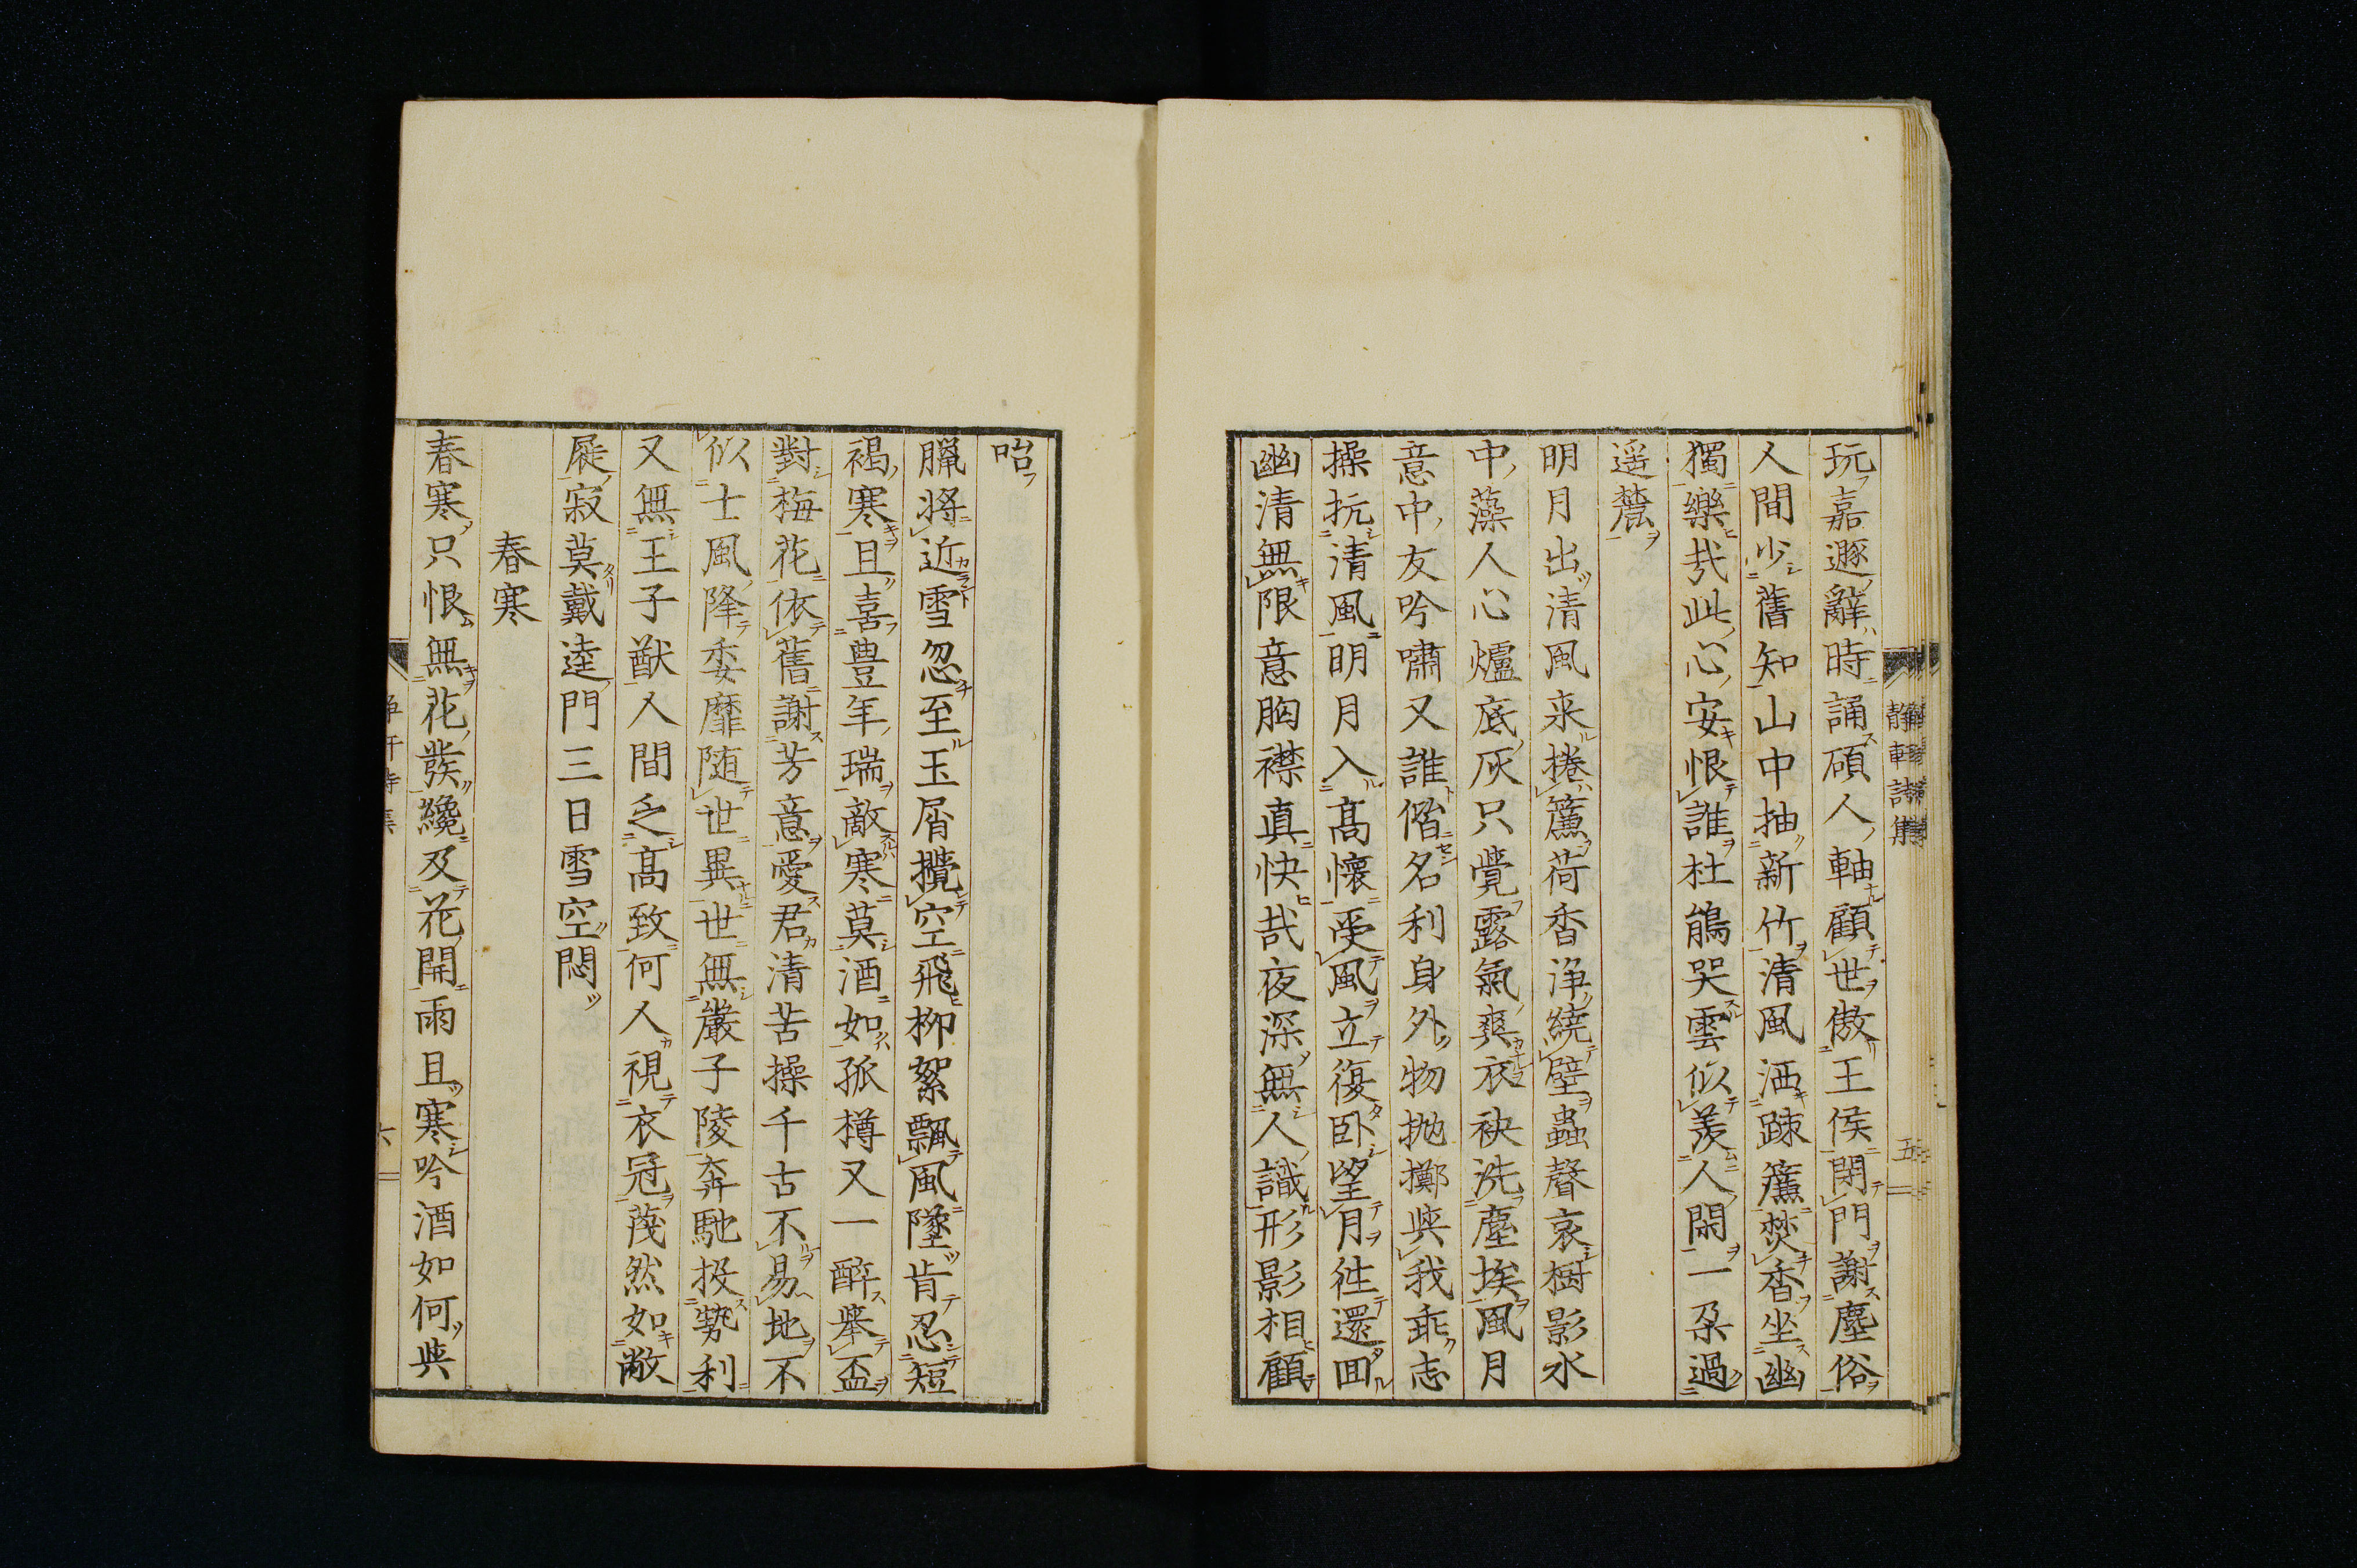 玩嘉遯辭時誦碩人軸顧世傲王侯閉門謝塵俗
人間少舊知山中抽新竹清風洒踈簾焚香坐幽
獨樂哉此心安恨誰杜鵑哭雲似羨人閑一朶過
遥麓
明月出清風来捲簾荷香浄繞壁蟲聲哀樹影水
中藻人心爐底灰只覺露氣爽衣袂洗塵埃風月
意中友吟嘯又誰偕名利身外物抛擲與我乖志
操抗清風明月入高懷受風立復卧望月往還回
幽清無限意胸襟真快哉夜深無人識形影相顧
咍
臘將近雪忽至玉屑攪空飛柳絮飄風墜肯忍短
褐寒且喜豊年瑞敵寒莫酒如孤樽又一醉擧盃
對梅花依舊謝芳意愛君清苦操千古不易地不
似士風降委靡随世異世無嚴子陵奔馳投勢利
又無王子猷人間乏高致何人視衣冠蔑然如敝
屣寂莫戴逵門三日雪空悶
春寒
春寒只恨無花發纔及花開雨且寒吟酒如何與
靜軒詩集
五
六